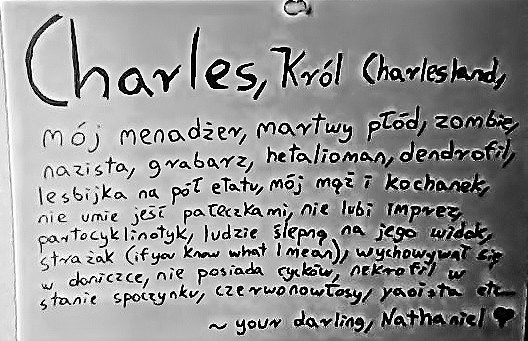 Charles, Król Charlesland,
mój menadżer, martwy płód, zombie,
nazista, grabarz, hetalioman, dendrofil,
lesbijka na pół etatu, mój mąż i kochanek,
nie umie jeść pałeczkami, nie lubi imprez,
partocyklinotyk, ludzie ślepną na jego widok,
strażak (if you know what I mean), wychowywał się
w doniczce, nie posiada cycków, nekrofil w
stanie spoczynku, czerwonowłosy, yaoista etc
~ your darling, Nathaniel ♥